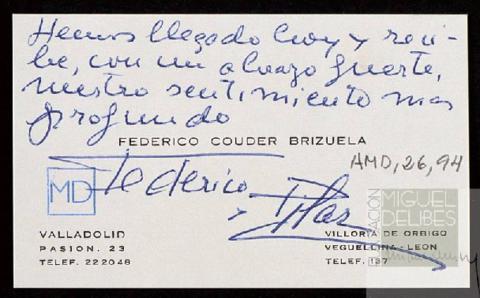 Hemos llegado hoy y reci-
be, con un abrazo fuerte,
nuestro sentimiento mas
profundo
FEDERICO COUDER BRIZUELA
AMD, 26, 94
MD
Federico
y Pilar
VALLADOLID
PASION, 23
TELEF. 222048
VILLORIA DE ORBIGO
VEGUELLINA - LEON
TELEF. 137
FUNDACIÓN
MIGUEL
DELIBES